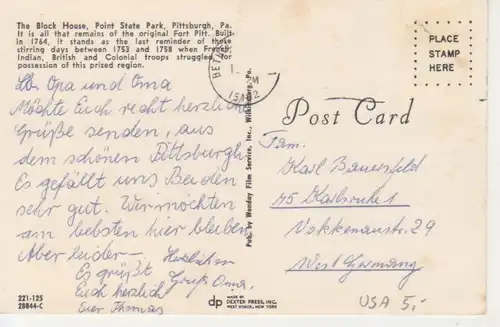 The Block House, Point State Park, Pittsburgh, Pa.
It is all that remains of the original Fort Pitt. Built
in 1764, it stands as the last reminder of those
stirring days between 1753 and 1758 when French,
Indian, British and Colonial troops struggled for
possession of this prized region.
PLACE
STAMP
HERE
Lb. Opa und Oma
Möchte Euch recht herzliche
Grüße senden, aus
dem schönen Pittsburgh.
Es gefällt uns Beiden
sehr gut. Wir möchten
am liebsten hier bleiben
Aber leider -.
Es grüßt
Euch herzlich
Euer Thomas
Herzlichen
Gruß Oma.
Pub. by Wenday Film Service, Inc., Wilkinsburg, Pa.
Post Card
Fam.
Karl Bauersfeld
75 Karlsruhe 1
Vokkenaustr. 29
West Germany
221-125
28844-C
dp
MADE BY
DEXTER PRESS, INC.
WEST NYACK, NEW YORK
USA 5,-